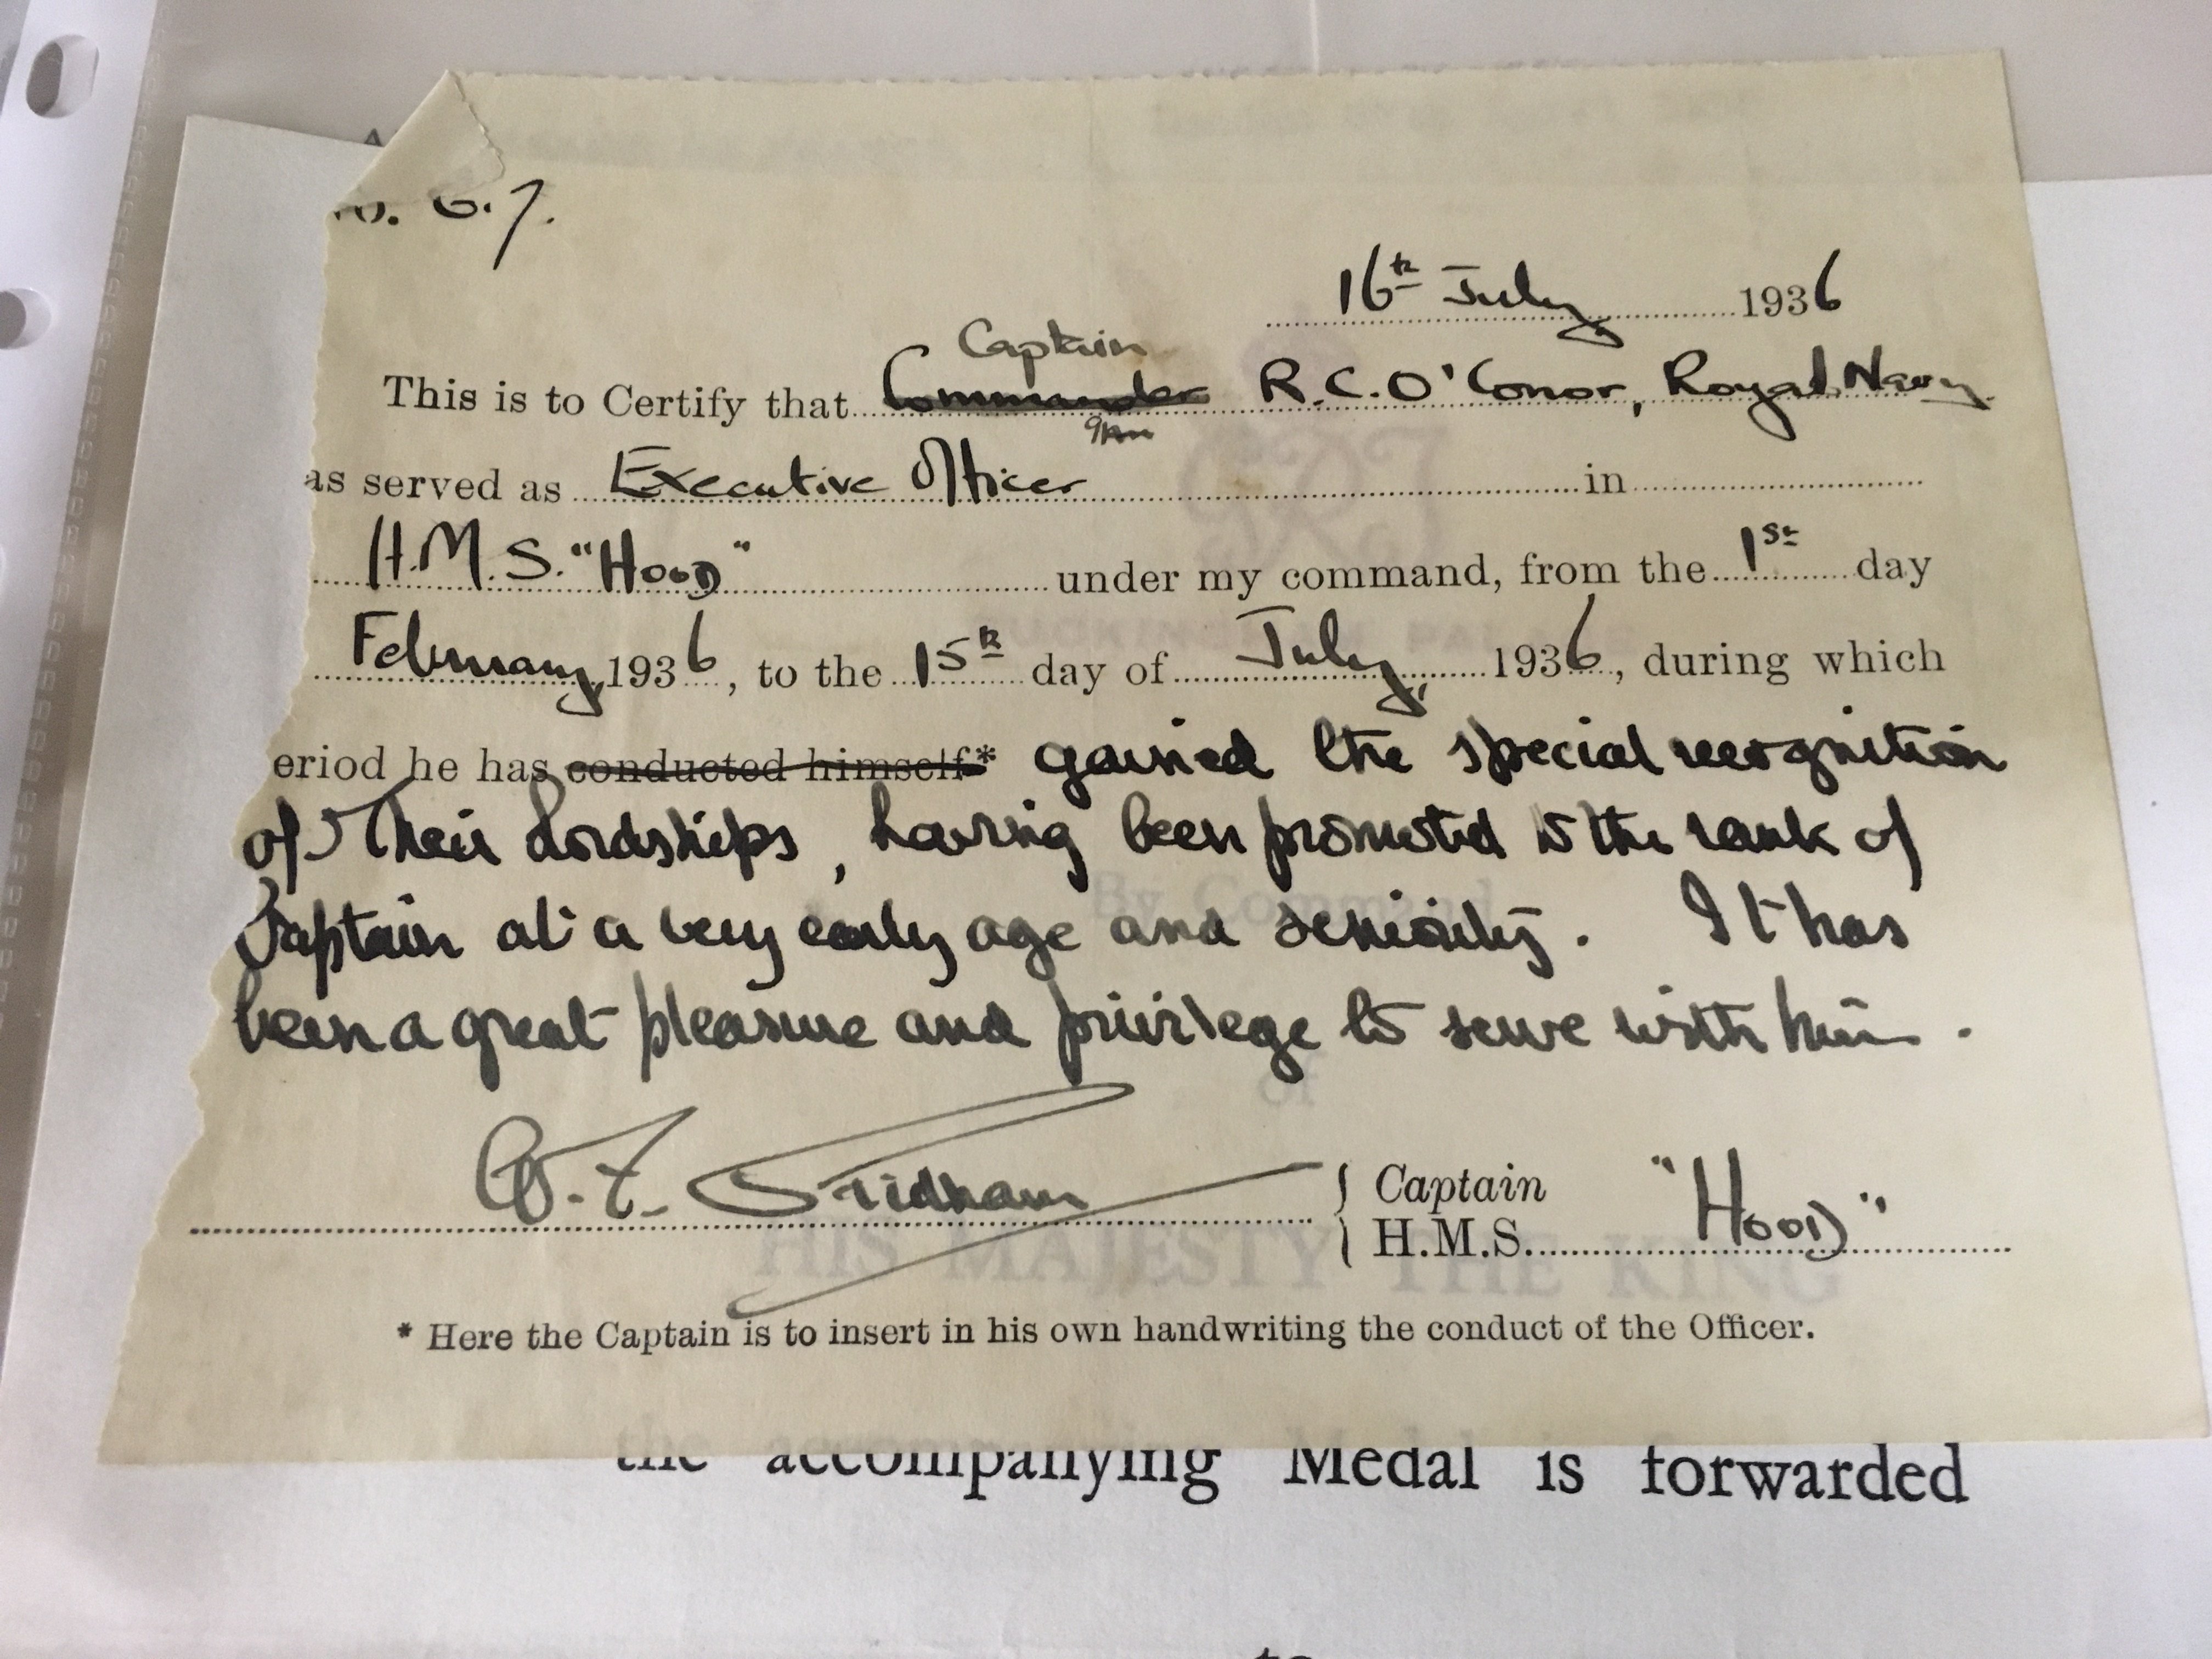 16th July 1936
Captain
This is to Certify that Commander R.C.O'Conor, Royal Navy
as served as Executive Officer in
H.M.S. "Hood" under my command, from the 1st day
February 1936, to the 15th day of July, 1936, during which
eriod he has conducted himself* gained the special recognition
of Their Lordships, having been promoted to the rank of
Captain at a very early age and seniority. It has
been a great pleasure and privilege to serve with him.
Captain
H.M.S. "Hood"
HIS MAJESTY THE KING
* Here the Captain is to insert in his own handwriting the conduct of the Officer.
the accompanying Medal is forwarded
to